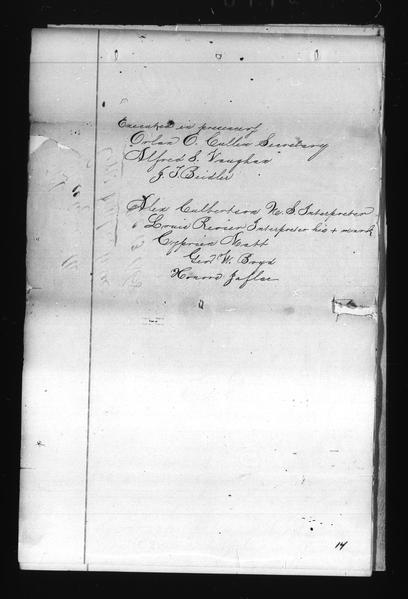 Executed in presence of
Orlan O. Cullen Secretary
Alfred S. Vaughan
J. T. Beidler
Alex Culbertson U. S. Interpreter
Louis Revier Interpreter his + mark
Cyprien Matt
Geo. W. Boyd
Honore
14